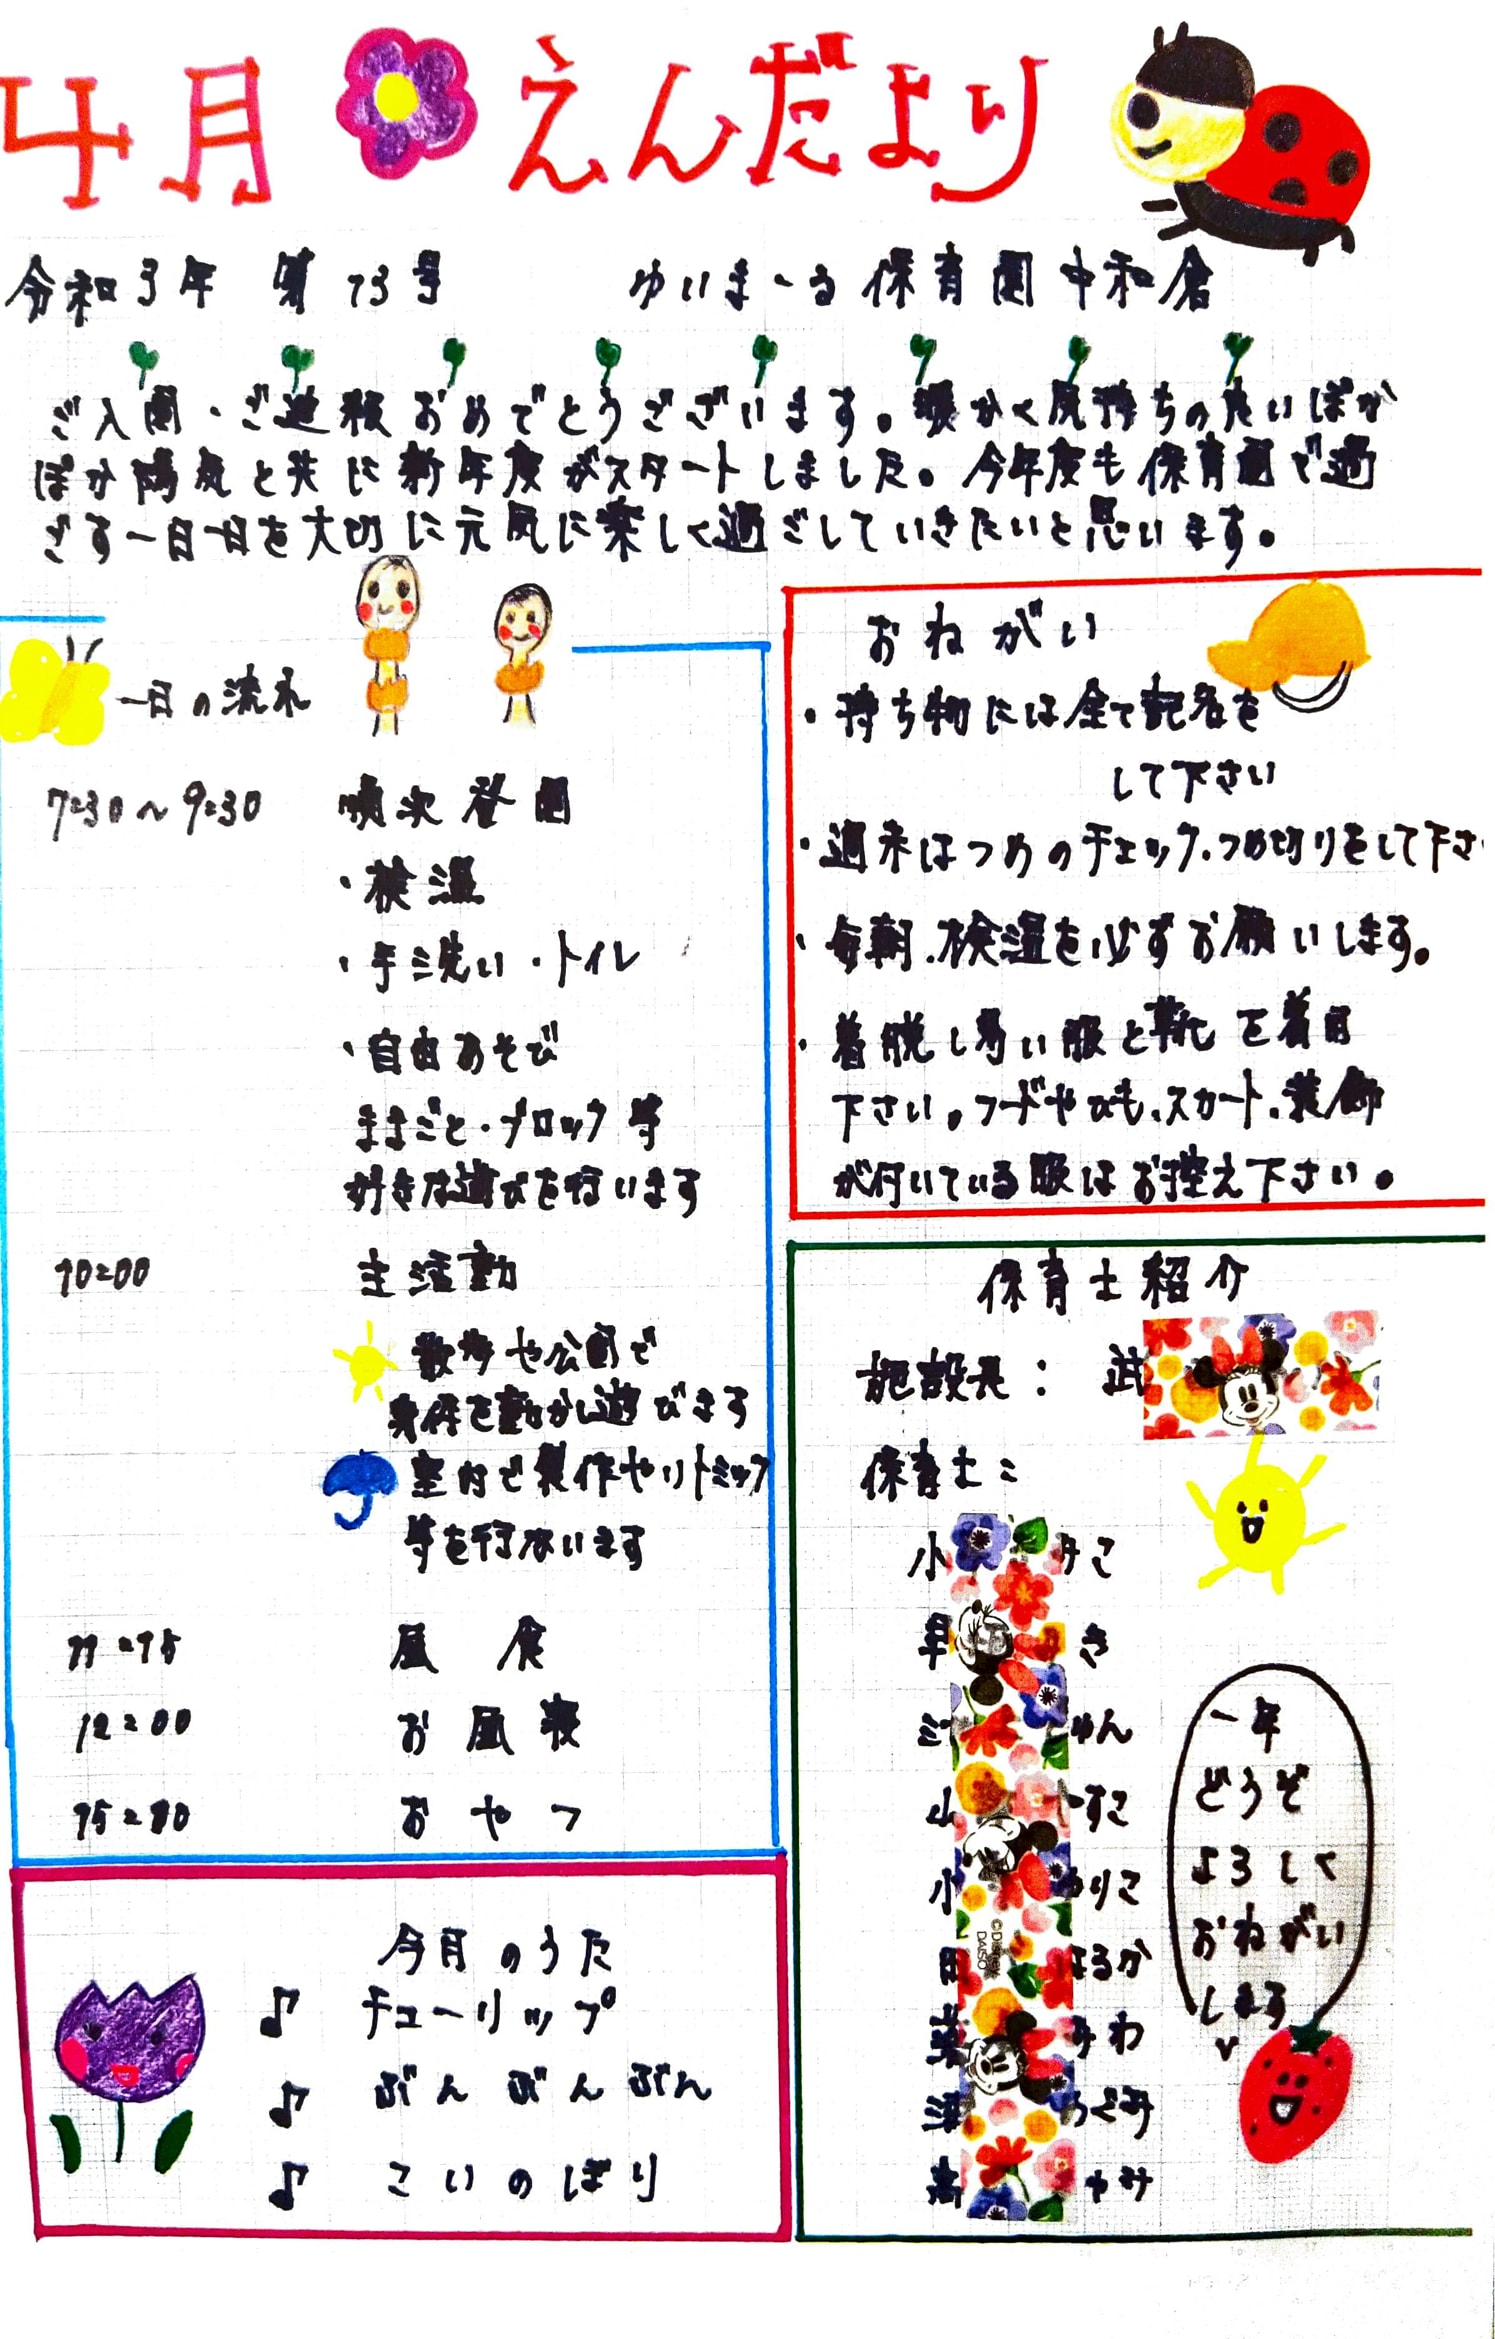 4月 えんだより
令和3年 第13号 ゆいまーる保育園中和倉
ご入園・ご進級おめでとうございます。暖かく気持ちのよいぽか
ぽか陽気と共に新年度がスタートしました。今年度も保育園で過
ごす一日一日を大切に元気に楽しく過ごしていきたいと思います。
一日の流れ
7:30～9:30 順次登園
・検温
・手洗い・トイレ
・自由あそび
ままごと・ブロック等
好きな遊びを行います
10:00 主活動
散歩や公園で
身体を動かし遊びます
室内で製作やリトミック
等を行ないます
11:15 昼食
12:00 お昼寝
15:10 おやつ
今月のうた
♪ チューリップ
♪ ぶんぶんぶん
♪ こいのぼり
おねがい
・持ち物には全て記名を
して下さい
・週末はつめのチェック、つめ切りをして下さ
・毎朝、検温を必ずお願いします。
・着脱し易い服と靴を着用
下さい。フードやひも、スカート、装飾
が付いている服はお控え下さい。
保育士紹介
施設長: 武
保育士:
小 みこ
早 き
ゅん
山 すこ
小 りこ
田 はるか
菜 みわ
澤 ぐみ
高 ゆみ
© Disney
DAISO
一年
どうぞ
よろしく
おねがい
します